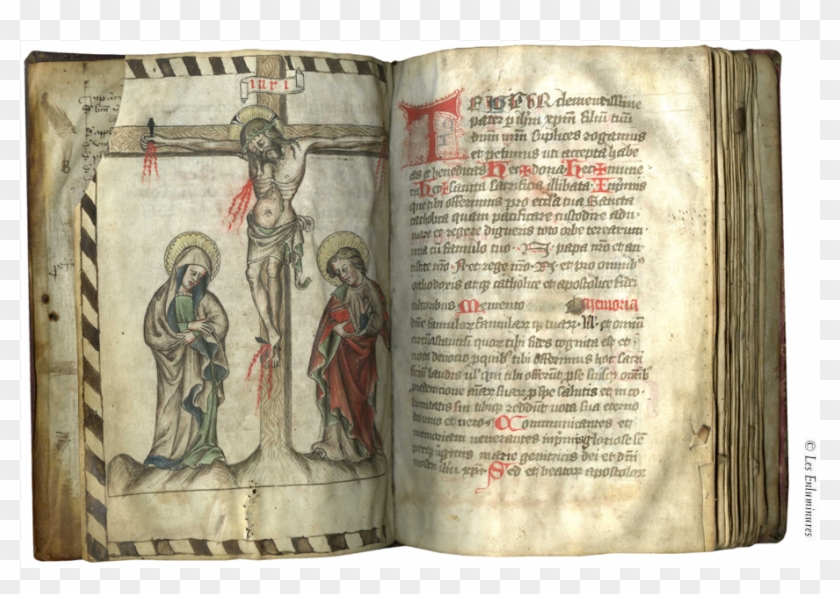 INRI
TE IGITUR clementissime
pater p ihm xpm filiū tuū
dnum nrm suplices rogamus
et petimus uti accepta habe
as et benedicas Hec dona Hec mune
ra Hec sancta sacrificia illibata Inprimis
que tibi offerimus pro ecclia tua sancta
catholica quam pacificare custodire adu
nare et regere digneris toto orbe terrarum
una cū famulo tuo N papa nr̄o et an
tistite nr̄o N et rege nr̄o N et pro omnibus
orthodoxis atq catholice et apostolice fidei
cultoribus Memento Memoria
dne famulor famular q tuar N et omniū
circūstanciū quor tibi fides cognita est et
nota devocio p quib tibi offerimus hoc sacri
ficiū laudis ul qui tibi offerūt p se suisq omib
p redempcione aiar suar p spe salutis et in co
lumitatis sue tibiq reddūt vota sua eterno
vivo et vero Communicantes et
memoriam venerantes inprimis gloriose se
per virginis marie genitricis dei et dni
ihu xpi Sed et beator apostolor
© Les Enluminures